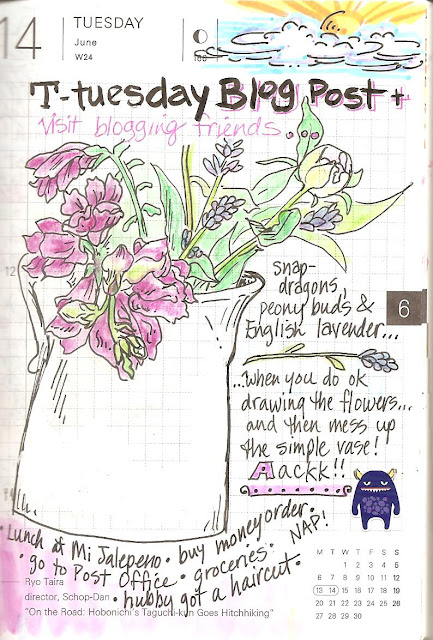 14
TUESDAY
June
W24
T-tuesday Blog Post +
Visit blogging friends...
12
Snap-
dragons,
peony buds &
English lavender...
6
...when you do ok
drawing the flowers...
and then mess up
the simple vase!
Aackk!!
• Lunch at Mi Jalepeno • buy money order •
• go to Post Office • groceries • NAP!
• hubby got a haircut •
Ryo Taira
director, Schop-Dan
"On the Road: Hobonichi's Taguchi-kun Goes Hitchhiking"
M T W T F S S
1 2 3 4 5
6 7 8 9 10 11 12
13 14 15 16 17 18 19
20 21 22 23 24 25 26
27 28 29 30